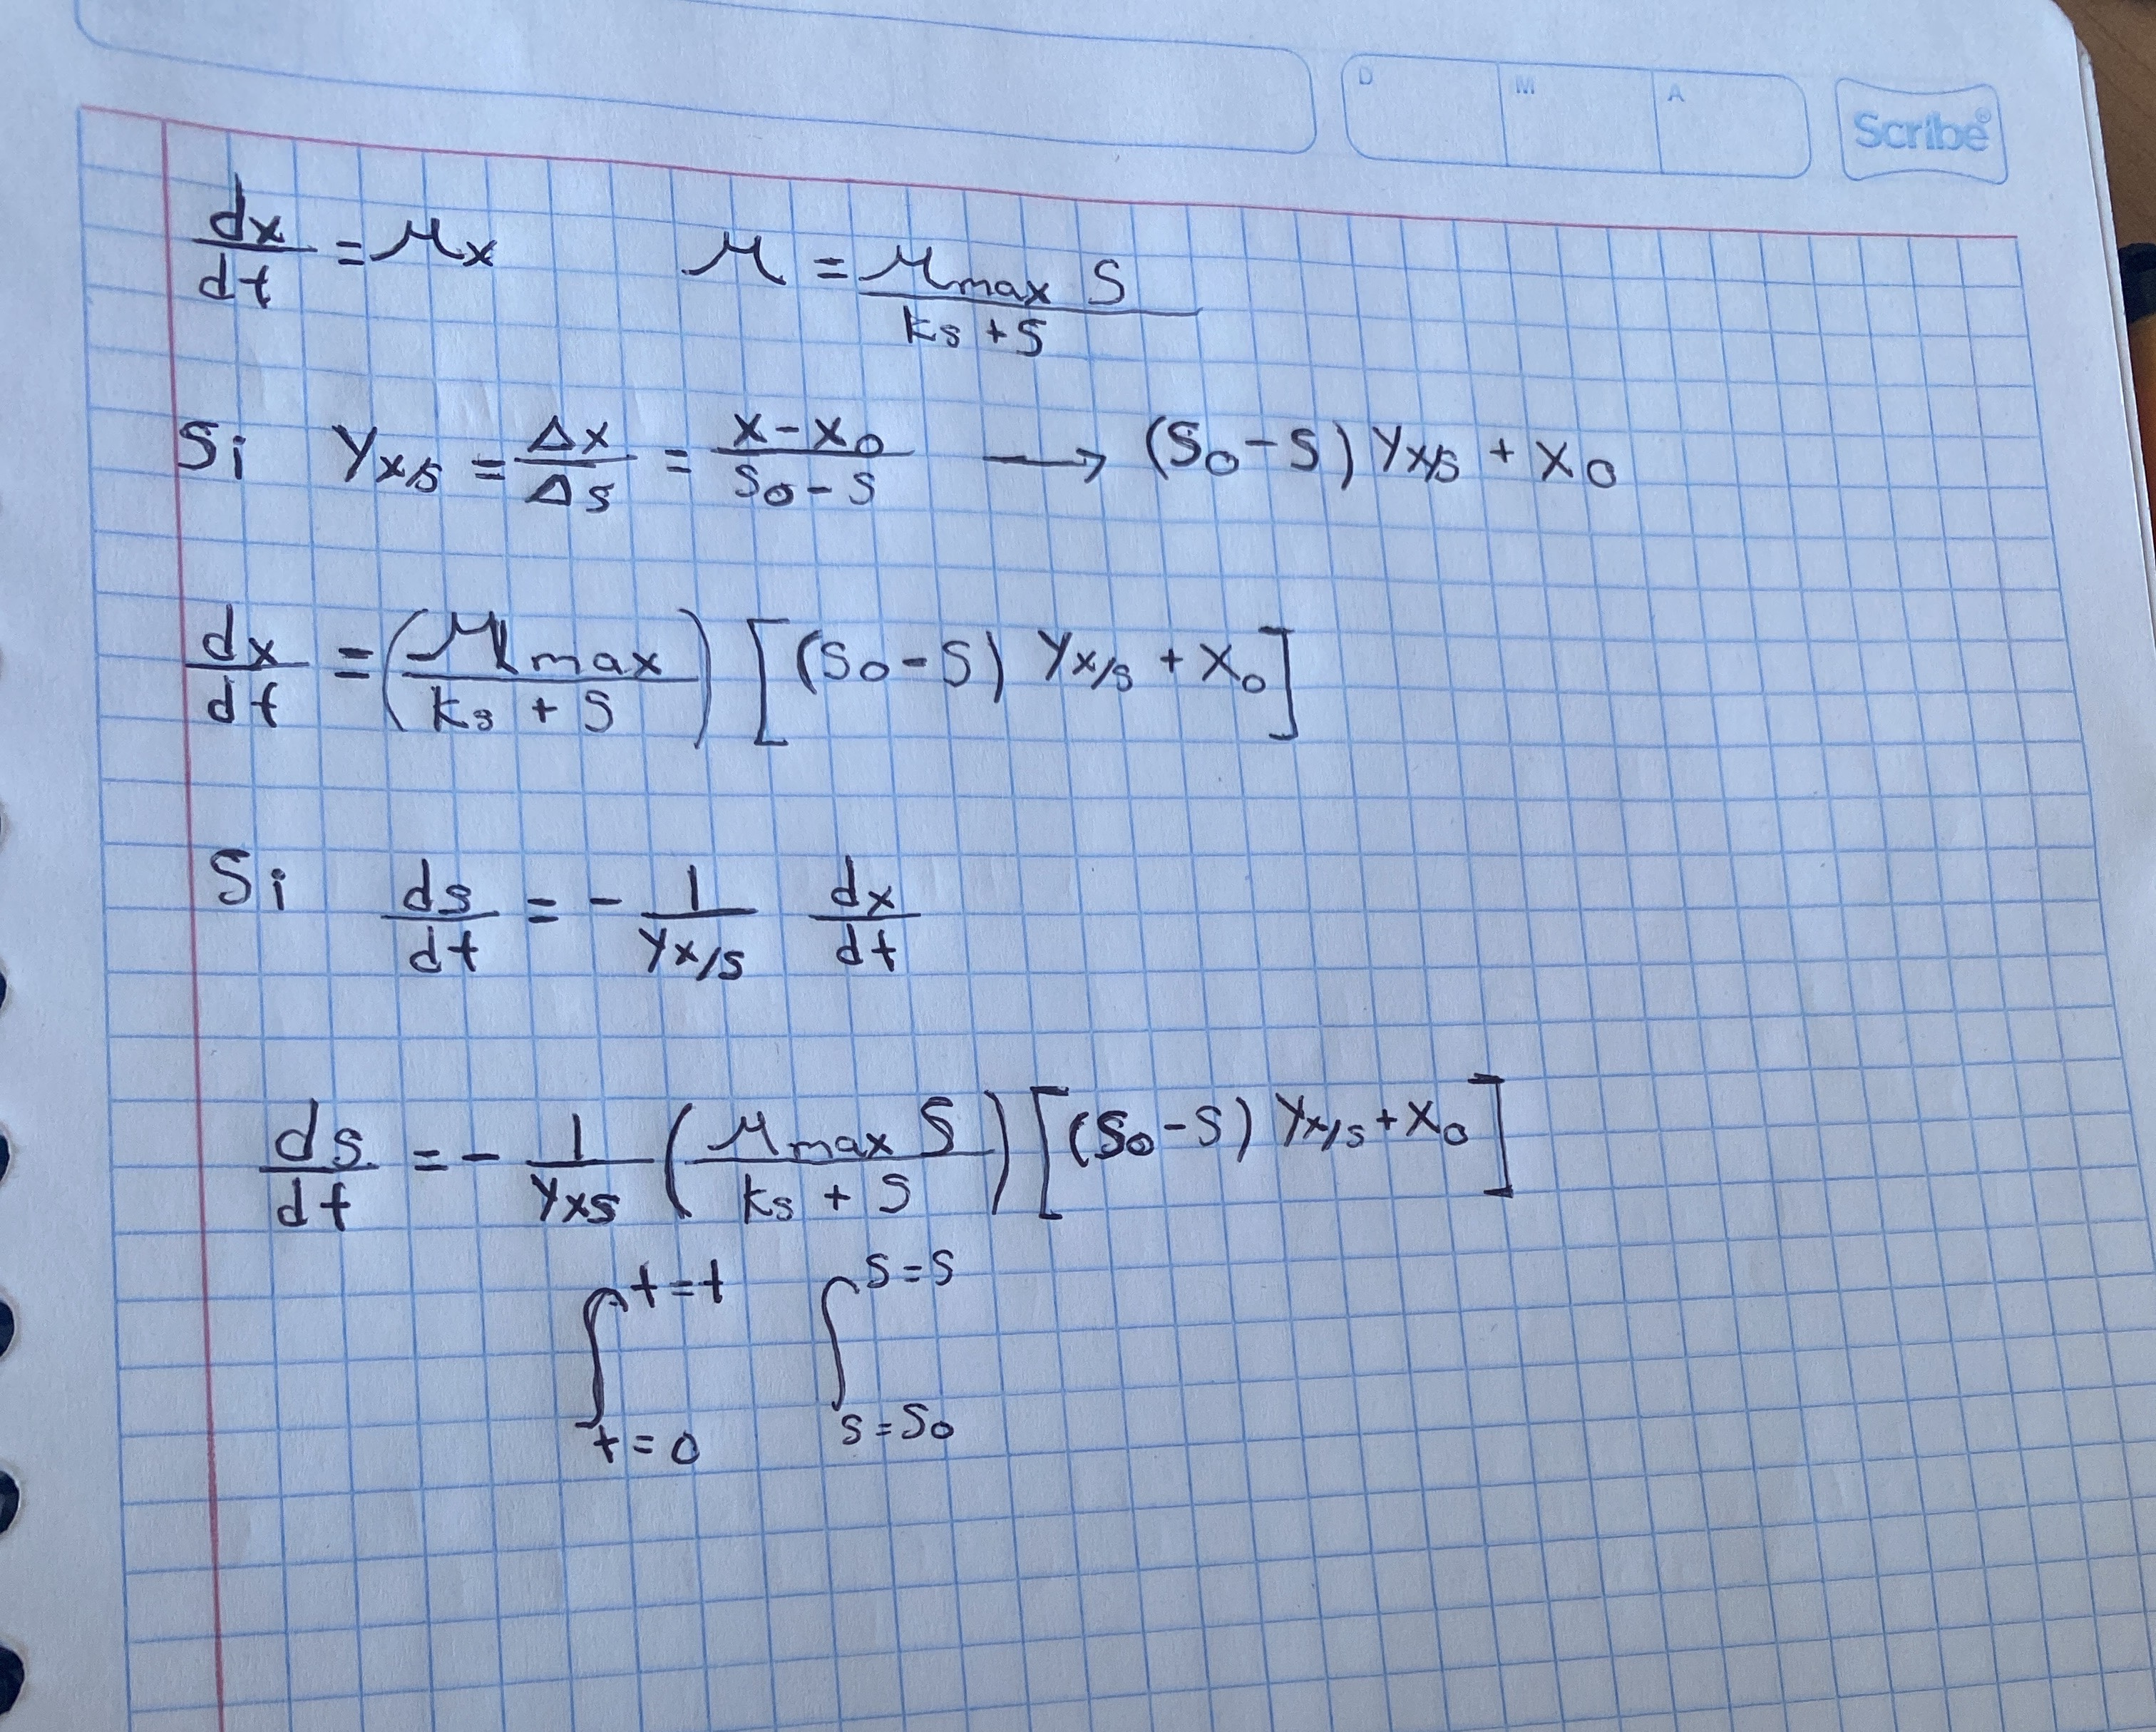 D M A Scribe®
dx/dt = μx    μ = μmax S / ks + S
Si Yx/s = Δx/Δs = x - x0 / S0 - S → (S0 - S) Yx/s + x0
dx/dt = (μmax / ks + S) [(S0 - S) Yx/s + x0]
Si ds/dt = - 1/Yx/s dx/dt
ds/dt = - 1/Yxs (μmax S / ks + S) [(S0 - S) Yx/s + x0]
∫ t=0 t=t ∫ s=S0 s=s